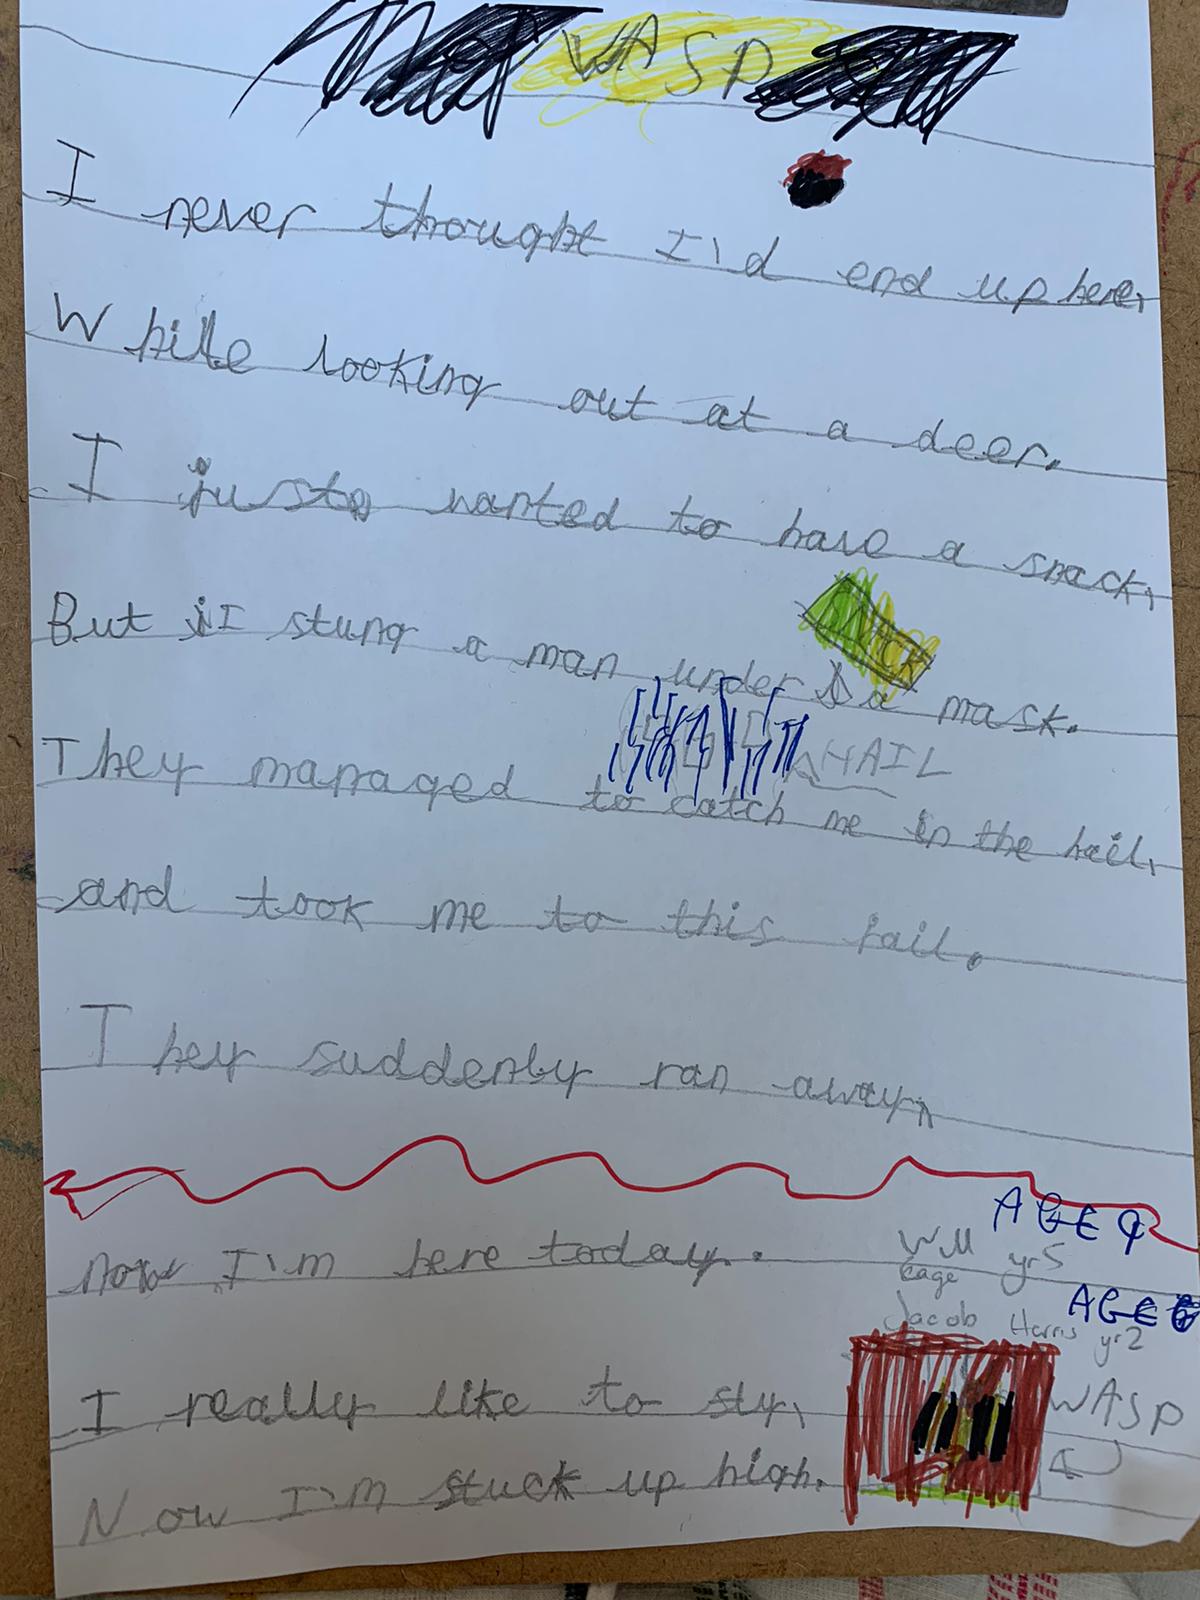 WASP
I never thought I'd end up here,
While looking out at a deer.
I just wanted to have a snack,
But I stung a man under a mask.
They managed to catch me in the hail,
HAIL
and took me to this jail.
They suddenly ran away,
AGE 9
Now I'm here today.
yr5
cage
AGE 6
Jacob Harris yr2
I really like to sly,
WASP
Now I'm stuck up high.